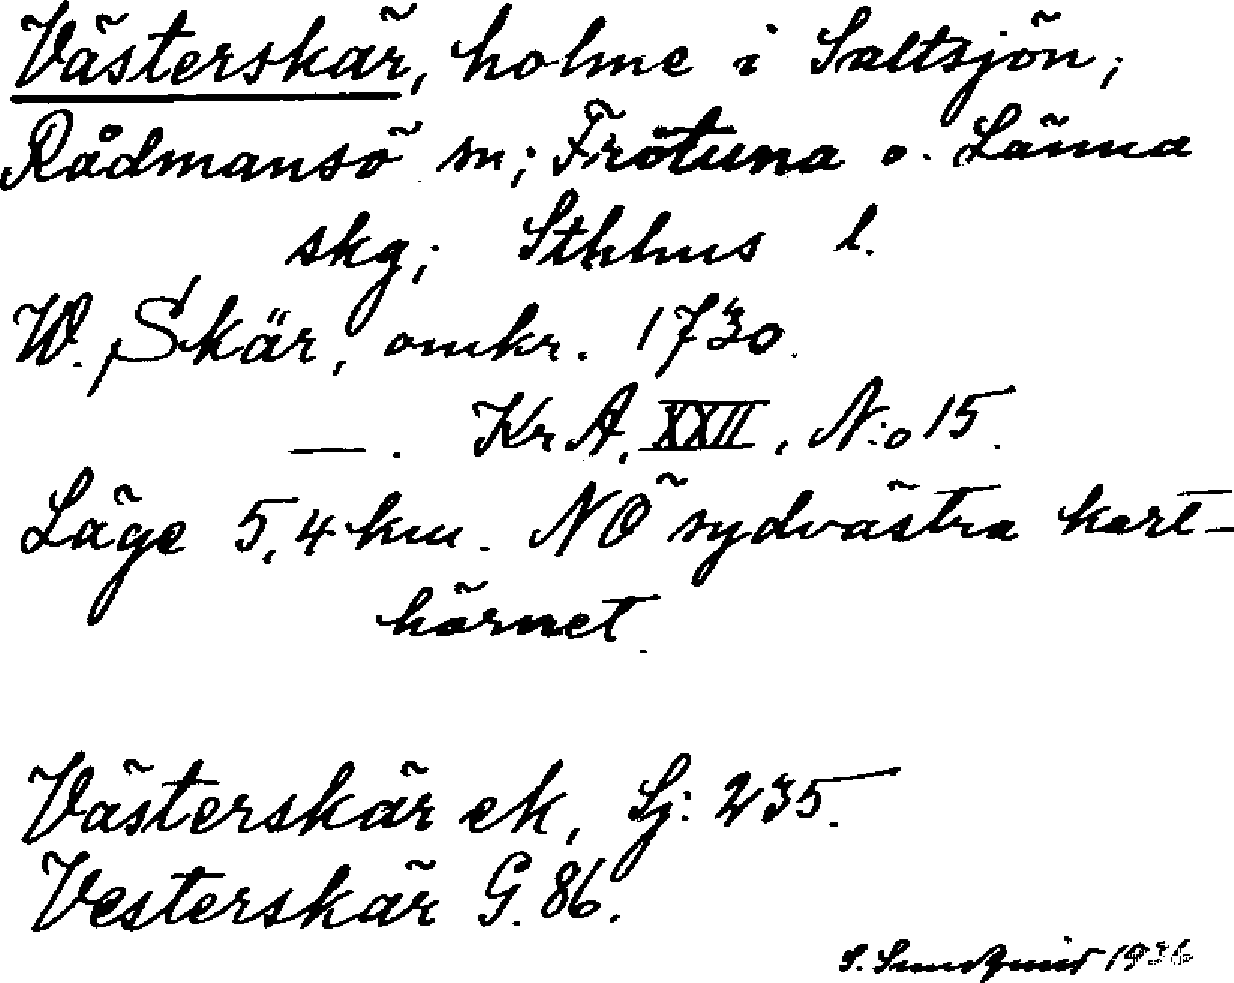 Västerskär, holme i Saltsjön,
Rådmansö sn; Frötuna o. Länna
skg; Sthlms l.
W. Skär, omkr. 1730.
—. KrA, XXII, N:o 15.
Läge 5,4 km. NÖ sydvästra kart-
hörnet.
Västerskär ek, Sj: 235.
Vesterskär G. 86.
S. Sundqvist 1936